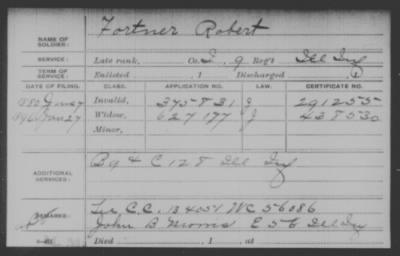 NAME OF SOLDIER: Fortner Robert
SERVICE: Late rank, Co. I, 9 Reg't Ill Inf
TERM OF SERVICE: Enlisted , 1 Discharged , 1
DATE OF FILING. CLASS. APPLICATION NO. CERTIFICATE NO.
1880 Jan 27 Invalid, 375831 J 291255
Jan 27 Widow, 627177 J 438530
Minor,
ADDITIONAL SERVICES: B 9 & C 128 Ill Inf
REMARKS: C.C. 134051 WC 56086
John B Morris E 56 Ill Inf
Died , 1 , at